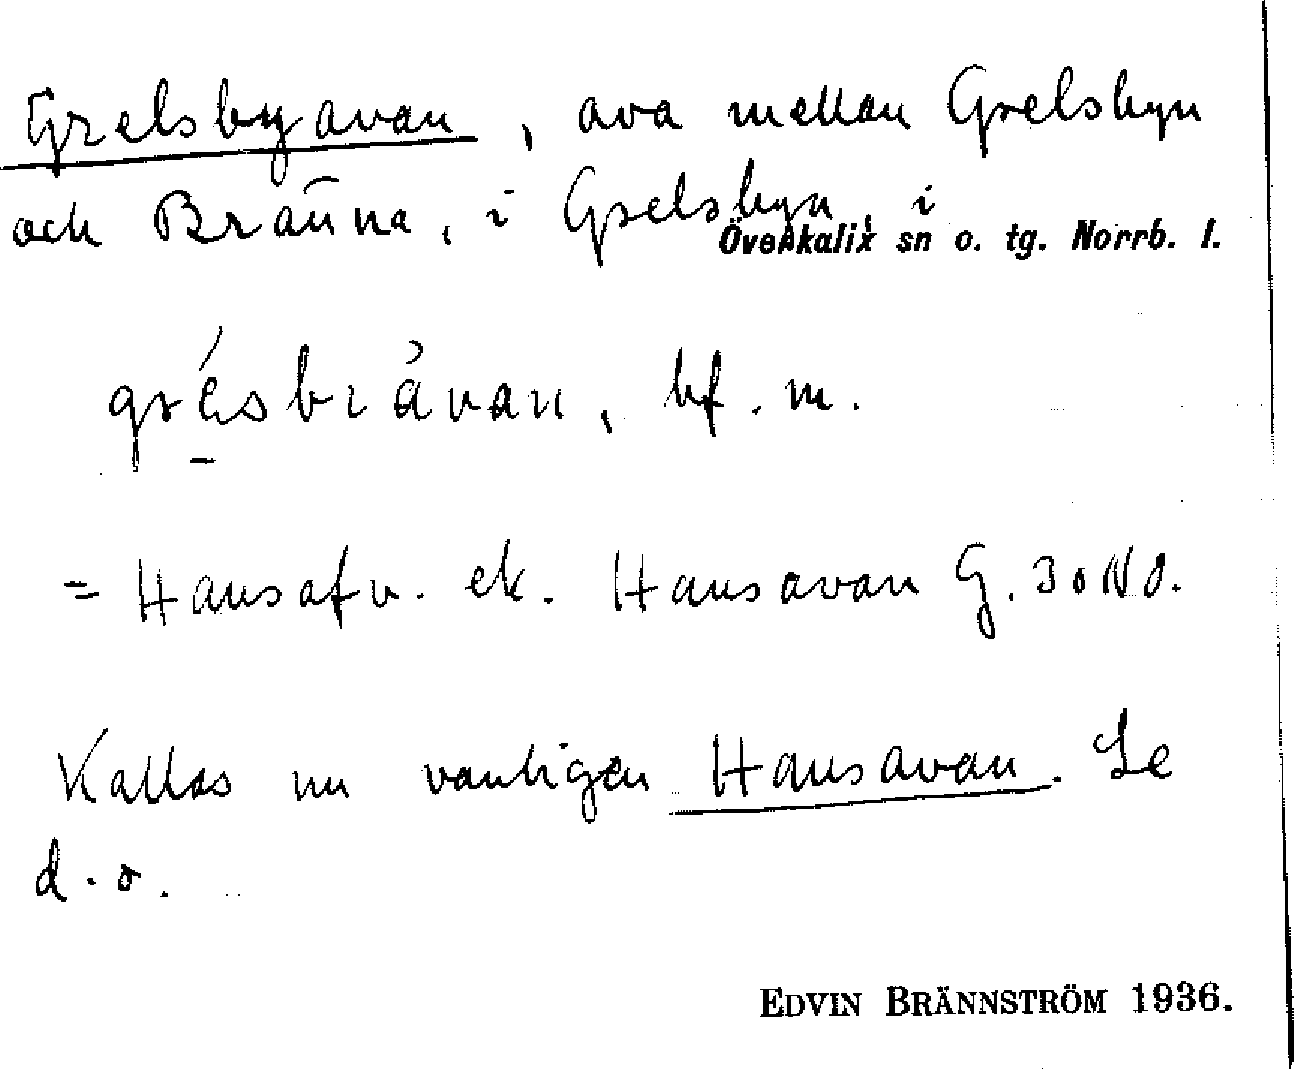 Grelsbyavan, ava mellan Grelsbyn
och Bränna, i Grelsbyn, i
Överkalix sn o. tg. Norrb. l.
grésbrávan, bf. m.
= Hansafv. ek. Hansavan G. 30 NO.
Kallas nu vanligen Hansavan. Se
d. o.
EDVIN BRÄNNSTRÖM 1936.